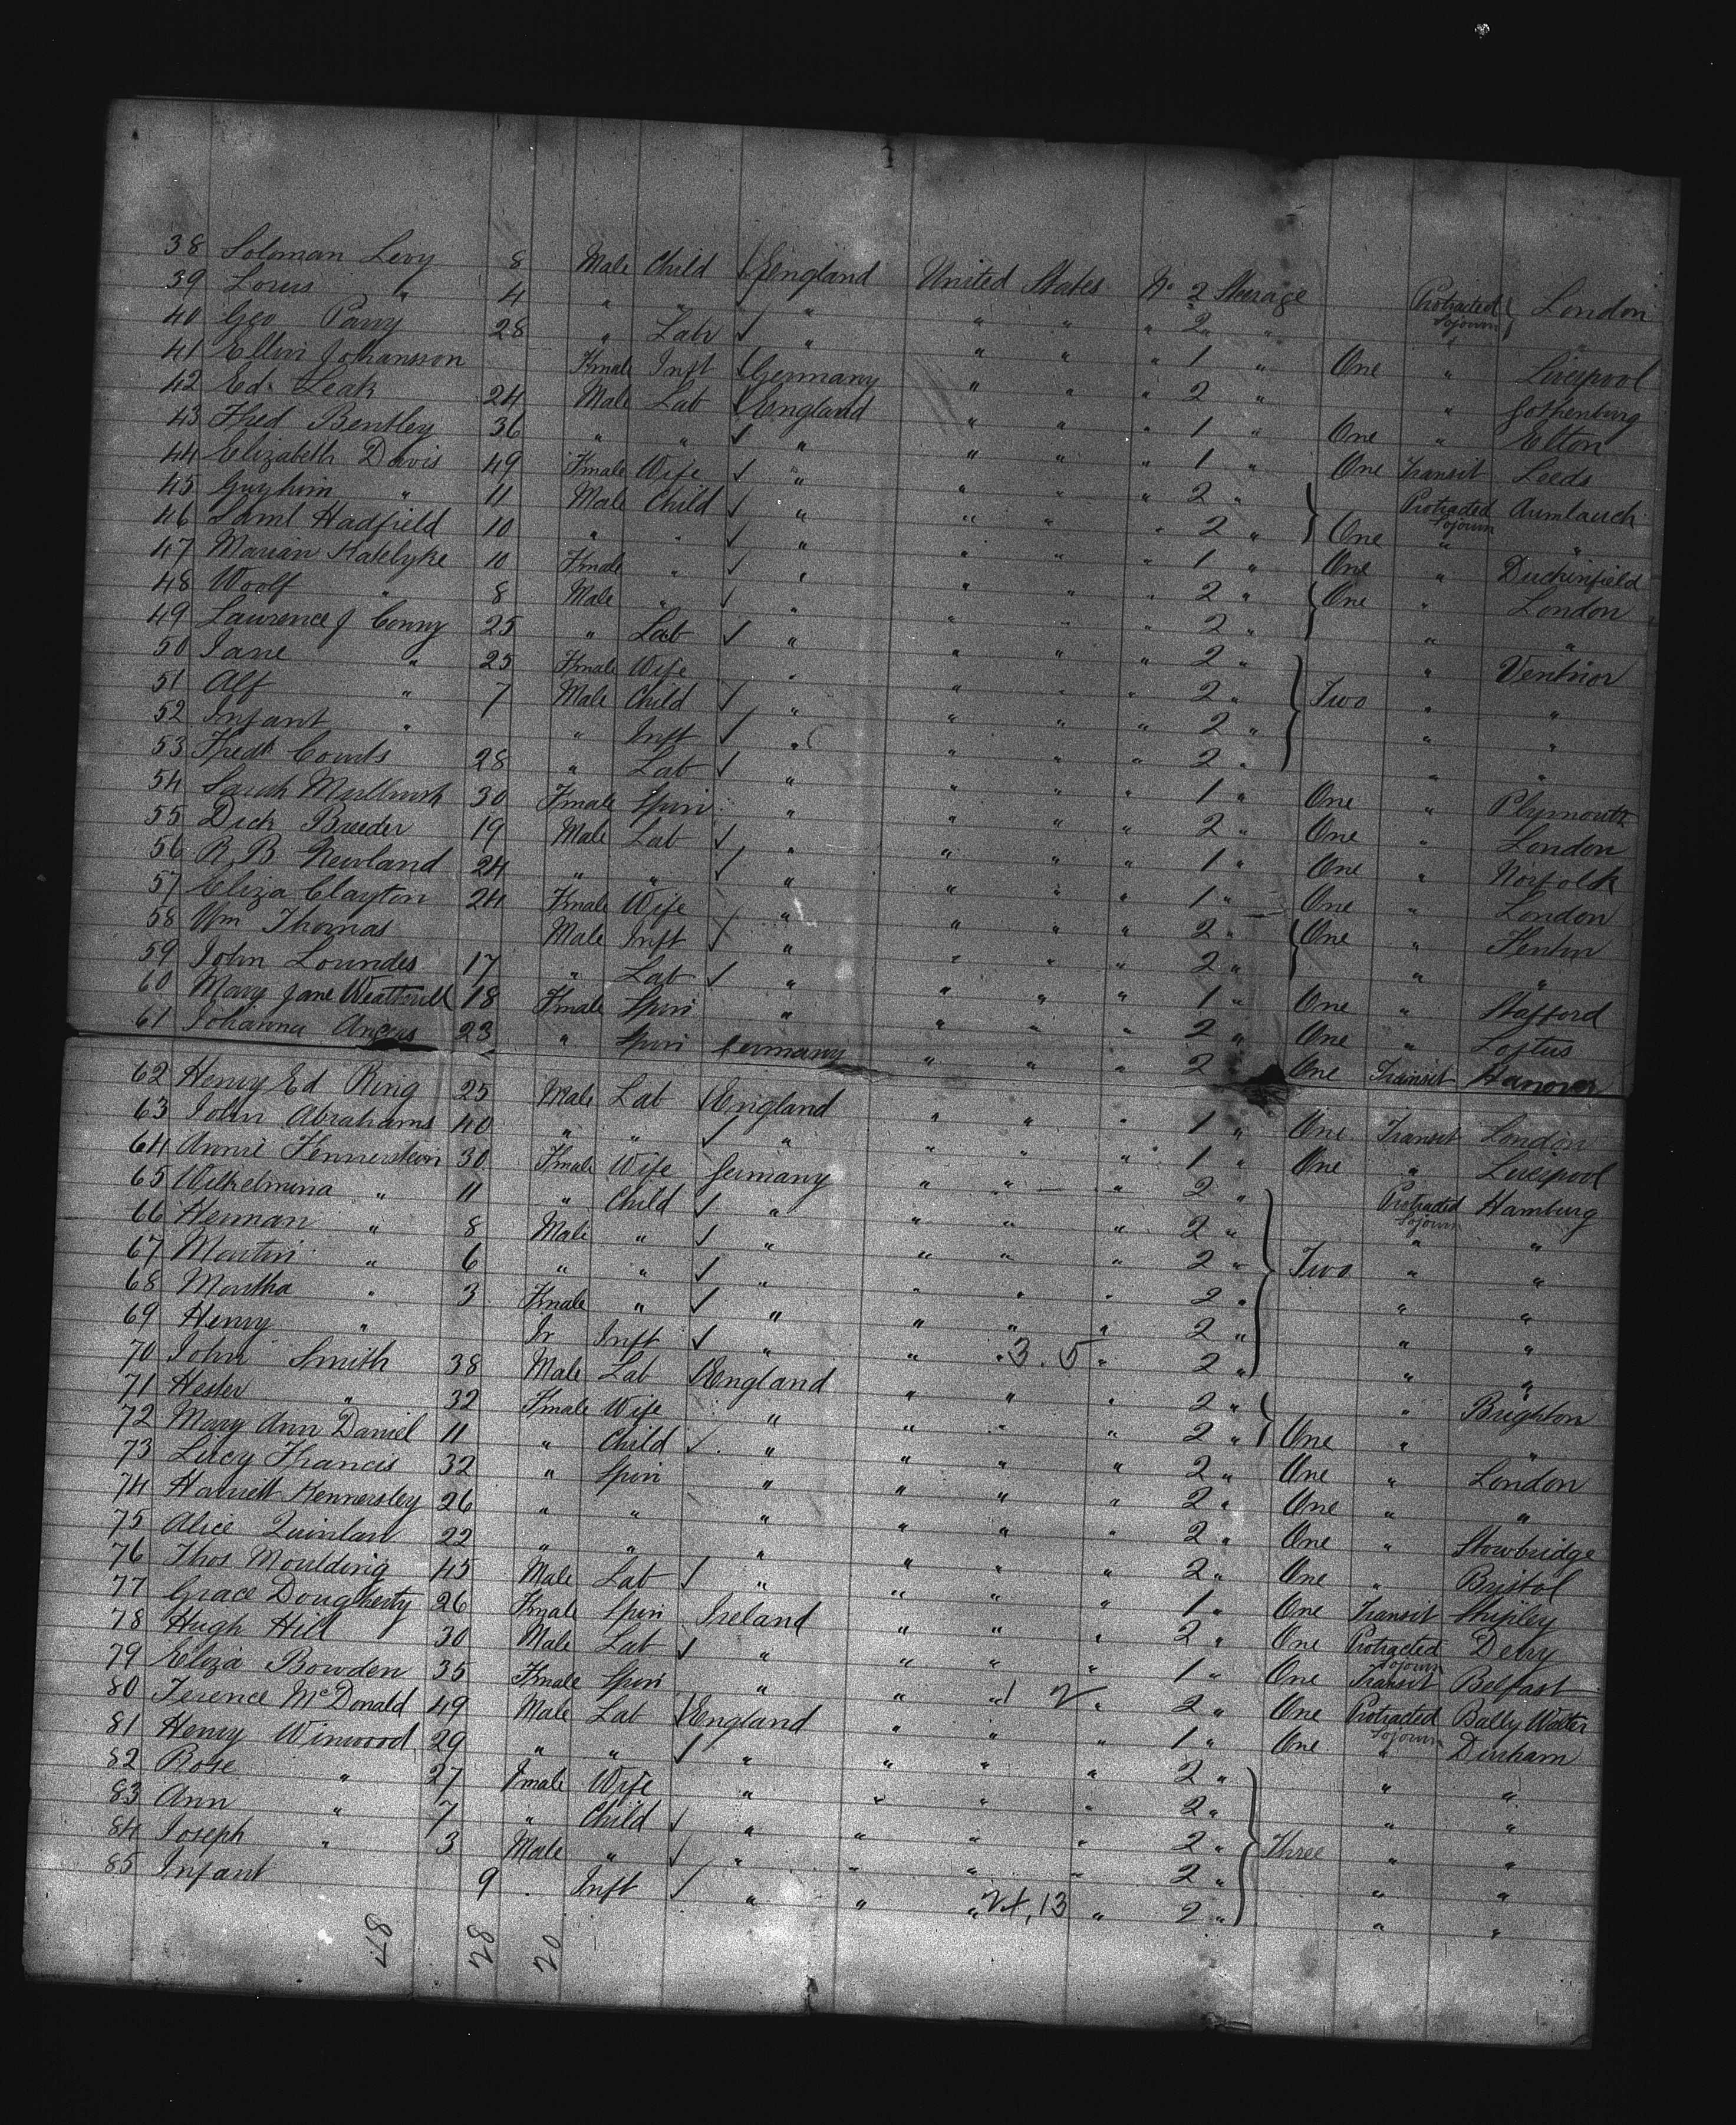 38 Soloman Levy 8 Male Child England United States No 2 Steerage Protracted Sojourn London
39 Louis " 4 " " " " " " 2 " " "
40 Geo Parry 28 " Labr " " " " 1 " One " Liverpool
41 Ellin Johansson Fmale Inft Germany " " " 2 " " Gothenburg
42 Ed. Leak 24 Male Lab England " " " 1 " One " Elton
43 Fred Bentley 36 " " " " " " 1 " One Transit Leeds
44 Elizabeth Davis 49 Fmale Wife " " " " 2 " Protracted Sojourn
45 " 11 Male Child " " " " 2 " One " "
46 Saml Hadfield 10 " " " " " " 1 " One " Duckinfield
47 Marian 10 Fmale " " " " " 2 " One " London
48 Woolf " 8 Male " " " " " 2 " " "
49 Lawrence J Conny 25 " Lab " " " " 2 " " Ventnor
50 Jane " 25 Fmale Wife " " " " 2 " Two " "
51 Alf " 7 Male Child " " " " 2 " " "
52 Infant " " Inft " " " " 2 " " "
53 Fredk Counts 28 " Lab " " " " 1 " One " Plymouth
54 Sarah 30 Fmale Spin " " " " 2 " One " London
55 Dick Breeder 19 Male Lab " " " " 1 " One " Norfolk
56 R. B Newland 24 " " " " " " 1 " One " London
57 Eliza Clayton 24 Fmale Wife " " " " 2 " One " Fenton
58 Wm Thomas Male Inft " " " " 2 " " "
59 John Lowndes 17 " Lab " " " " 1 " One " Stafford
60 Mary Jane Weatherill 18 Fmale Spin " " " " 2 " One " Loftus
61 Johanna 23 " Spin Germany " " " 2 " One Transit Hanover
62 Henry Ed Ring 25 Male Lab England " " " 1 " One Transit London
63 John Abrahams 40 " " " " " " 1 " One " Liverpool
64 Annie Fennerstein 30 Fmale Wife Germany " " " 2 " Protracted Sojourn Hamburg
65 Wilhelmina " 11 " Child " " " " 2 " " "
66 Herman " 8 Male " " " " " 2 " Two " "
67 Martin " 6 " " " " " " 2 " " "
68 Martha " 3 Fmale " " " " " 2 " " "
69 Henry " Inft " " " 3.5 " 2 " " "
70 John Smith 38 Male Lab England " " " 2 " " Brighton
71 Hester " 32 Fmale Wife " " " " 2 " One " "
72 Mary Ann Daniel 11 " Child " " " " 2 " One " London
73 Lucy Francis 32 " Spin " " " " 2 " One " "
74 Harriett Kennersley 26 " " " " " " 2 " One " Stowbridge
75 Alice Quinlan 22 " " " " " " 2 " One " Bristol
76 Thos Moulding 45 Male Lab " " " " 1 " One Transit Shipley
77 Grace Dougherty 26 Fmale Spin Ireland " " " 2 " One Protracted Sojourn Derry
78 Hugh Hill 30 Male Lab " " " " 1 " One Transit Belfast
79 Eliza Bowden 35 Fmale Spin " " " 1 2 " 2 " One Protracted Sojourn Bally Walter
80 Terence McDonald 49 Male Lab England " " " 1 " One " Durham
81 Henry Winwood 29 " " " " " " 2 " " "
82 Rose " 27 Fmale Wife " " " " 2 " " "
83 Ann " 7 " Child " " " " 2 " Three " "
84 Joseph " 3 Male " " " " " 2 " " "
85 Infant 9 Inft " " " 24,13 " 2 " " "
87 28 20